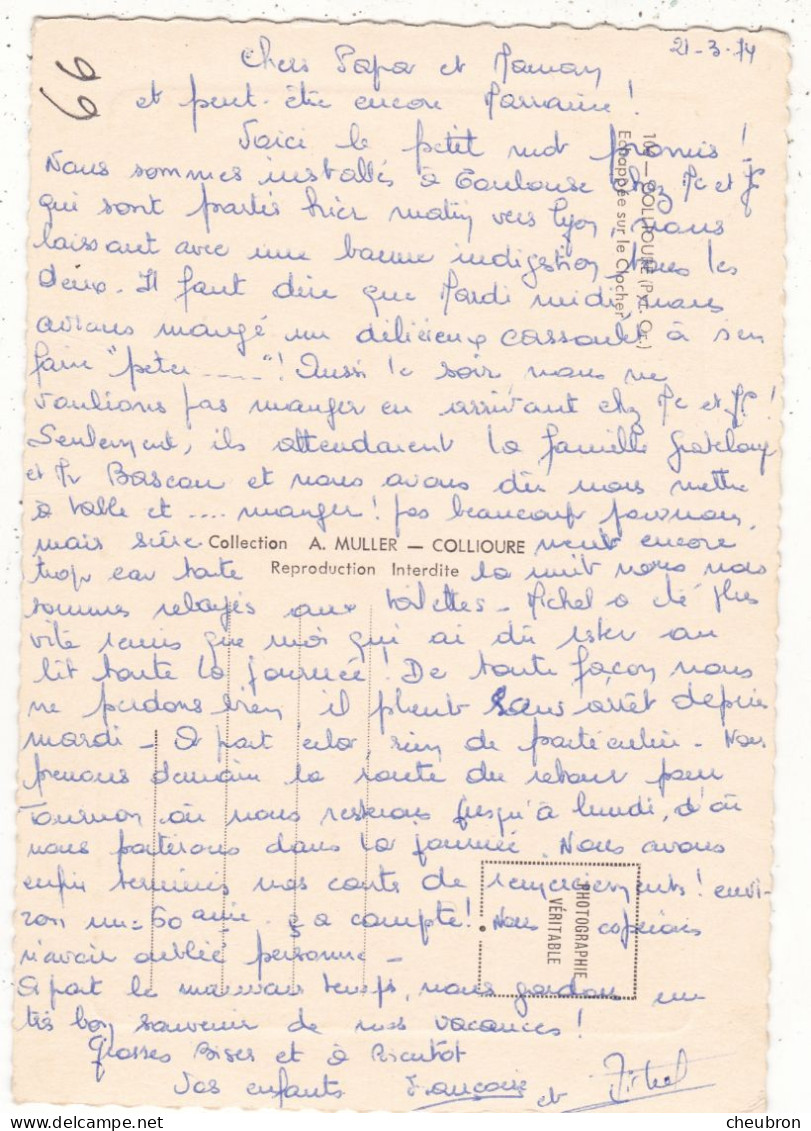 99
21-3-74
Chers Papa et Maman
et peut-être encore Marraine !
Voici le petit mot promis !
Nous sommes installés à Toulouse chez Mc et JC
qui sont partis hier matin vers Lyon, nous
laissant avec une bonne indigestion tous les
deux. Il faut dire que Mardi midi nous
avions mangé un délicieux cassoulet à s'en
faire "peter ....."! Aussi le soir nous ne
voulions pas manger en arrivant chez Mc et JC !
Seulement, ils attendaient la famille
et Mr Bascou et nous avons dû nous mettre
à table et .... manger ! pas beaucoup
mais encore
trop car toute la nuit nous nous
sommes relayés aux toilettes - Michel a été plus
vite remis que moi qui ai dû rester au
lit toute la journée ! De toute façon nous
ne perdons rien il pleut sans arrêt depuis
mardi - A part cela, rien de particulier - Nous
prenons demain la route du retour pour
Tournon où nous resterons jusqu'à lundi, d'où
nous partirons dans la journée. Nous avons
enfin terminés nos cartes de remerciements ! envi-
ron une 60aine. ça compte ! Nous espérons
n'avoir oublié personne -
A part le mauvais temps, nous gardons un
très bon souvenir de nos vacances !
Grosses Bises et à Bientôt
Vos enfants Françoise et Michel
104 — COLLIOURE (Pyr. Or.)
Echappée sur le Clocher
Collection A. MULLER — COLLIOURE
Reproduction Interdite
PHOTOGRAPHIE
VÉRITABLE
cheubron.com